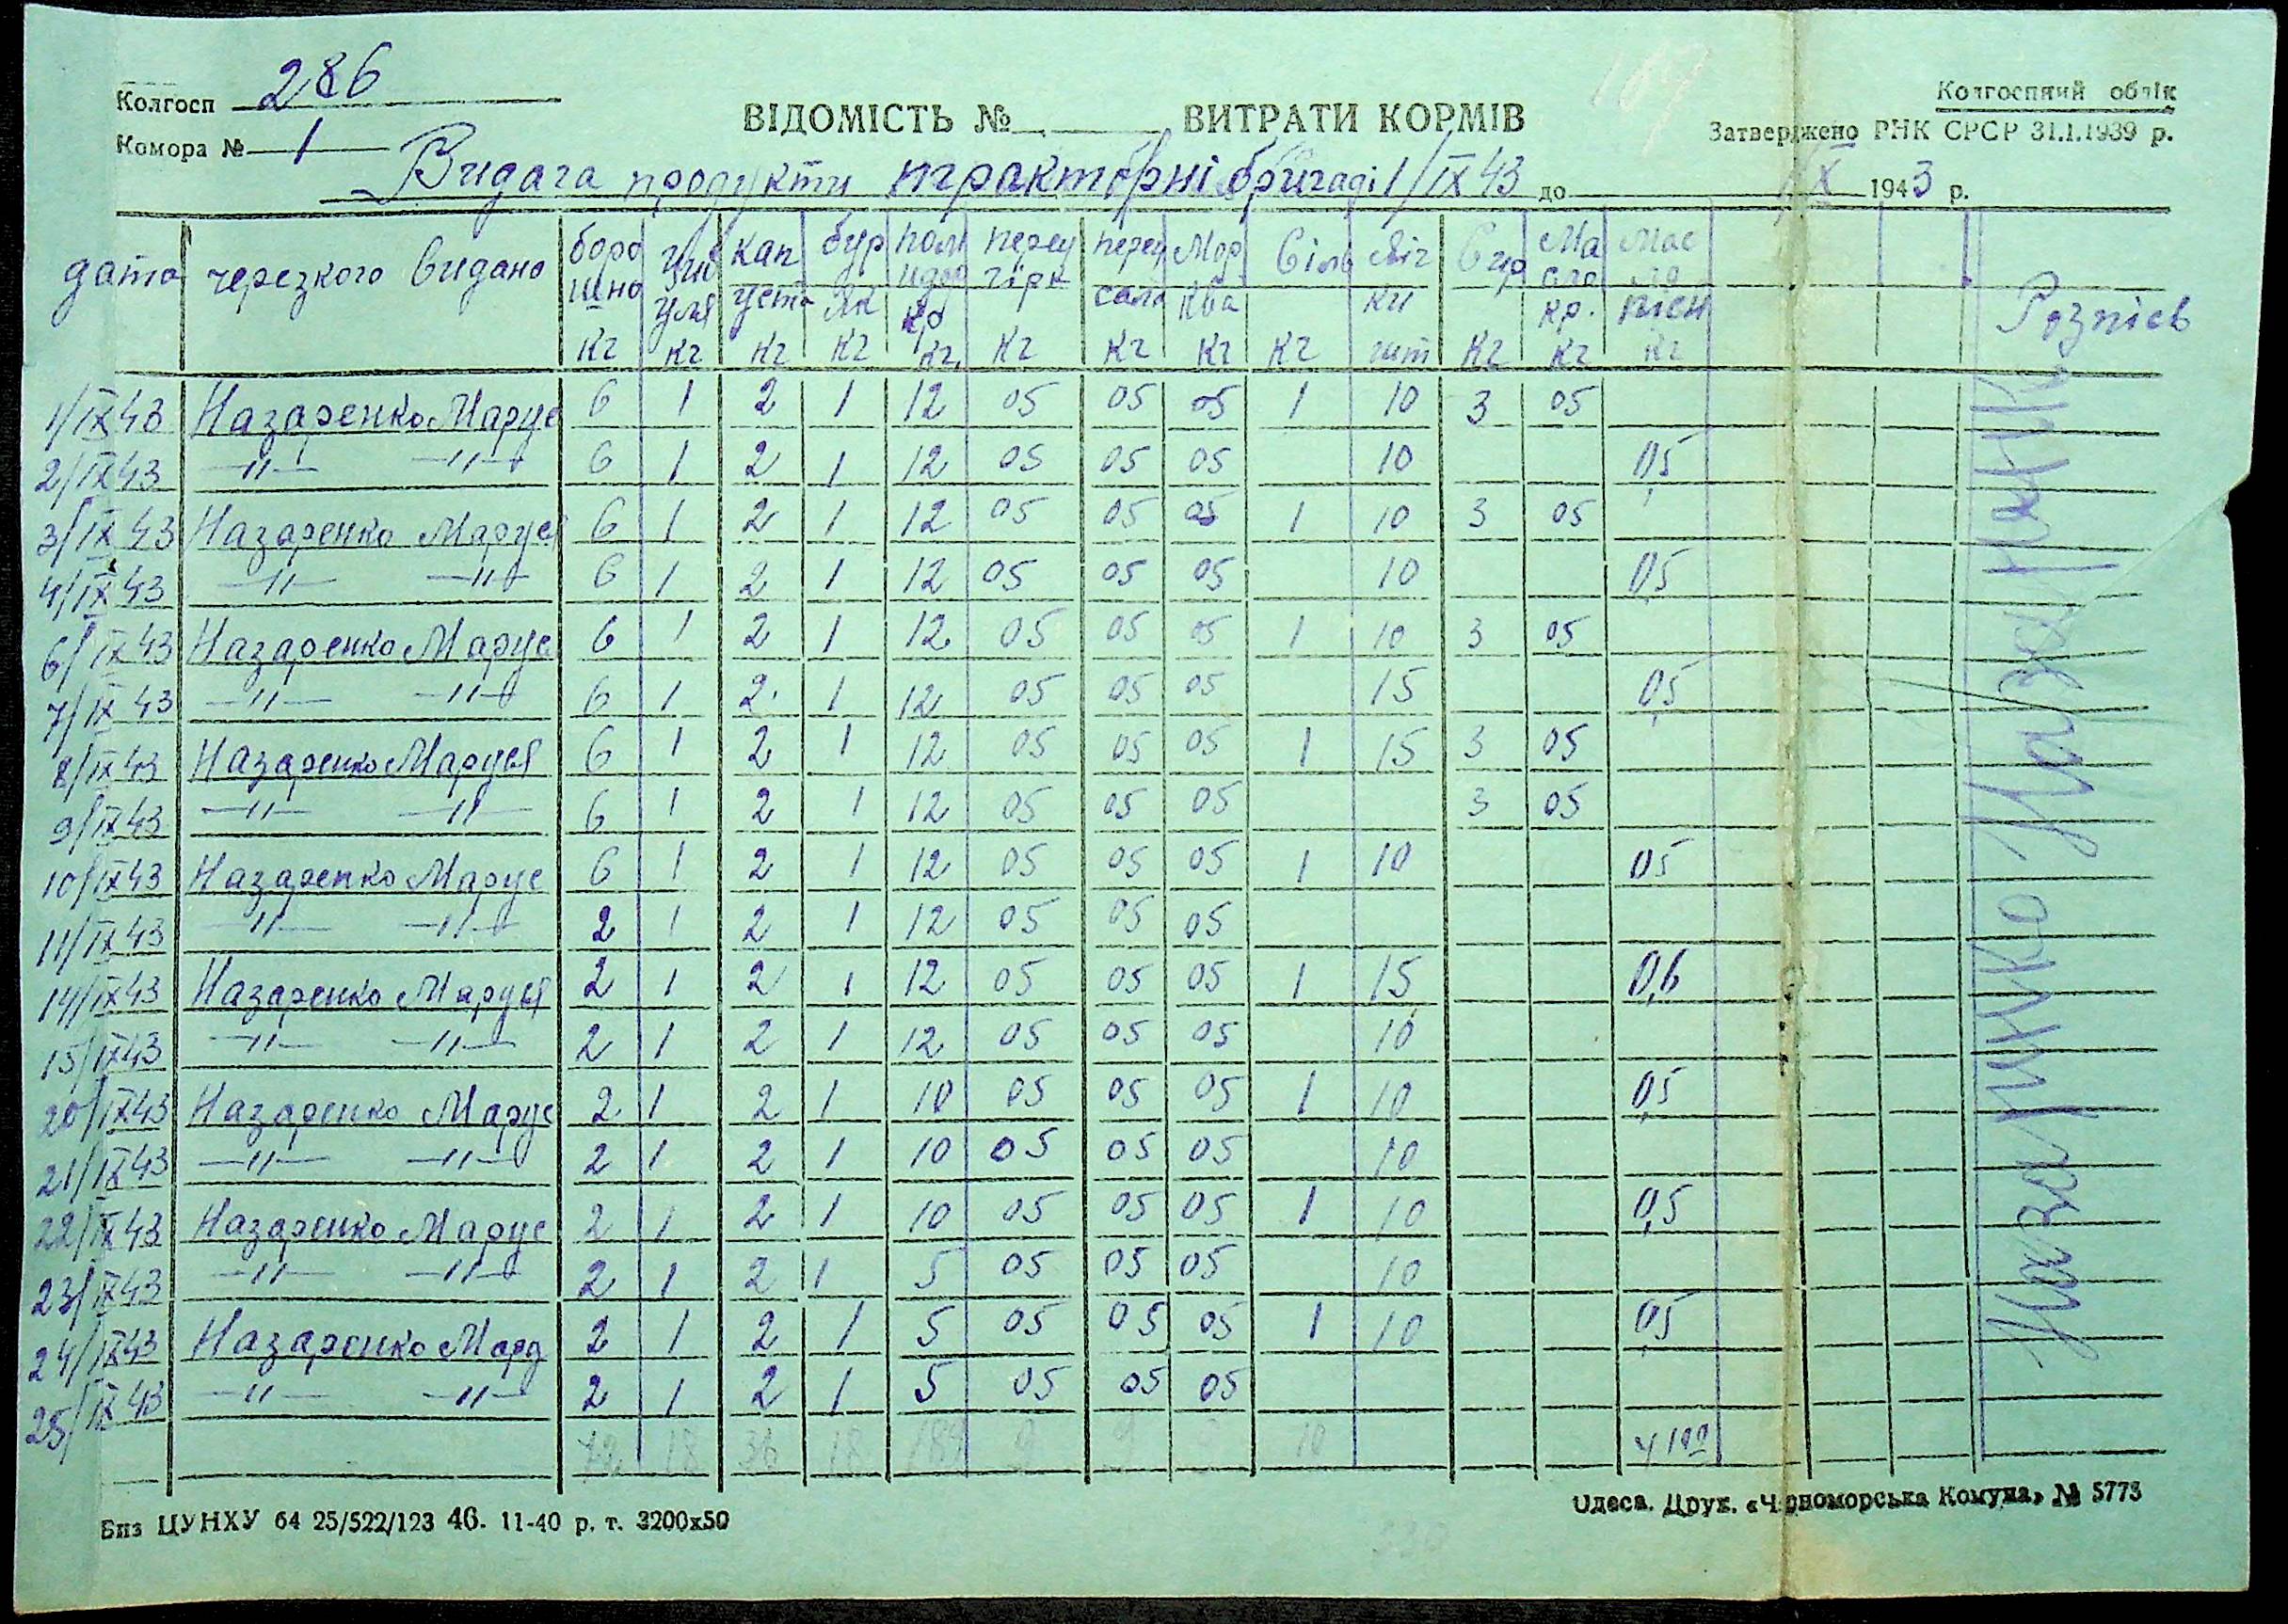 Колгосп 286
Комора № 1
ВІДОМІСТЬ № ВИТРАТИ КОРМІВ
Колгоспний облік
Затверджено РНК СРСР 31.1.1939 р.
Видача продукти тракторні бригаді 1/IX 43 до IX 1943 р.
дата черезкого видано боро шно кг циб уля кг кап уста кг бур як кг пом идор кр кг перец гірк кг перец сала кг Мор ква кг Сіль кг яіч ки шт Сир кг Ма сло кр. кг Мас ло пісн кг Розпісь
1/IX 43 Назаренко Марус 6 1 2 1 12 05 05 05 1 10 3 05
2/IX 43 —"— —"— 6 1 2 1 12 05 05 05 10 0,5
3/IX 43 Назаренко Марус 6 1 2 1 12 05 05 05 1 10 3 05
4/IX 43 —"— —"— 6 1 2 1 12 05 05 05 10 0,5
6/IX 43 Назаренко Марус 6 1 2 1 12 05 05 05 1 10 3 05
7/IX 43 —"— —"— 6 1 2 1 12 05 05 05 15 0,5
8/IX 43 Назаренко Маруся 6 1 2 1 12 05 05 05 1 15 3 05
9/IX 43 —"— —"— 6 1 2 1 12 05 05 05 3 05
10/IX 43 Назаренко Марус 6 1 2 1 12 05 05 05 1 10 05
11/IX 43 —"— —"— 2 1 2 1 12 05 05 05
14/IX 43 Назаренко Маруся 2 1 2 1 12 05 05 05 1 15 0,6
15/IX 43 —"— —"— 2 1 2 1 12 05 05 05 10
20/IX 43 Назаренко Марус 2 1 2 1 10 05 05 05 1 10 0,5
21/IX 43 —"— —"— 2 1 2 1 10 05 05 05 10
22/IX 43 Назаренко Марус 2 1 2 1 10 05 05 05 1 10 0,5
23/IX 43 —"— —"— 2 1 2 1 5 05 05 05 10
24/IX 43 Назаренко Мару 2 1 2 1 5 05 05 05 1 10 0,5
25/IX 43 —"— —"— 2 1 2 1 5 05 05 05
72 18 36 18 189 9 9 10 4 100
Назаренко
Бпз ЦУНХУ 64 25/522/123 46. 11-40 р. т. 3200х50
Одеса. Друк. «Чорноморська Комуна» № 5773